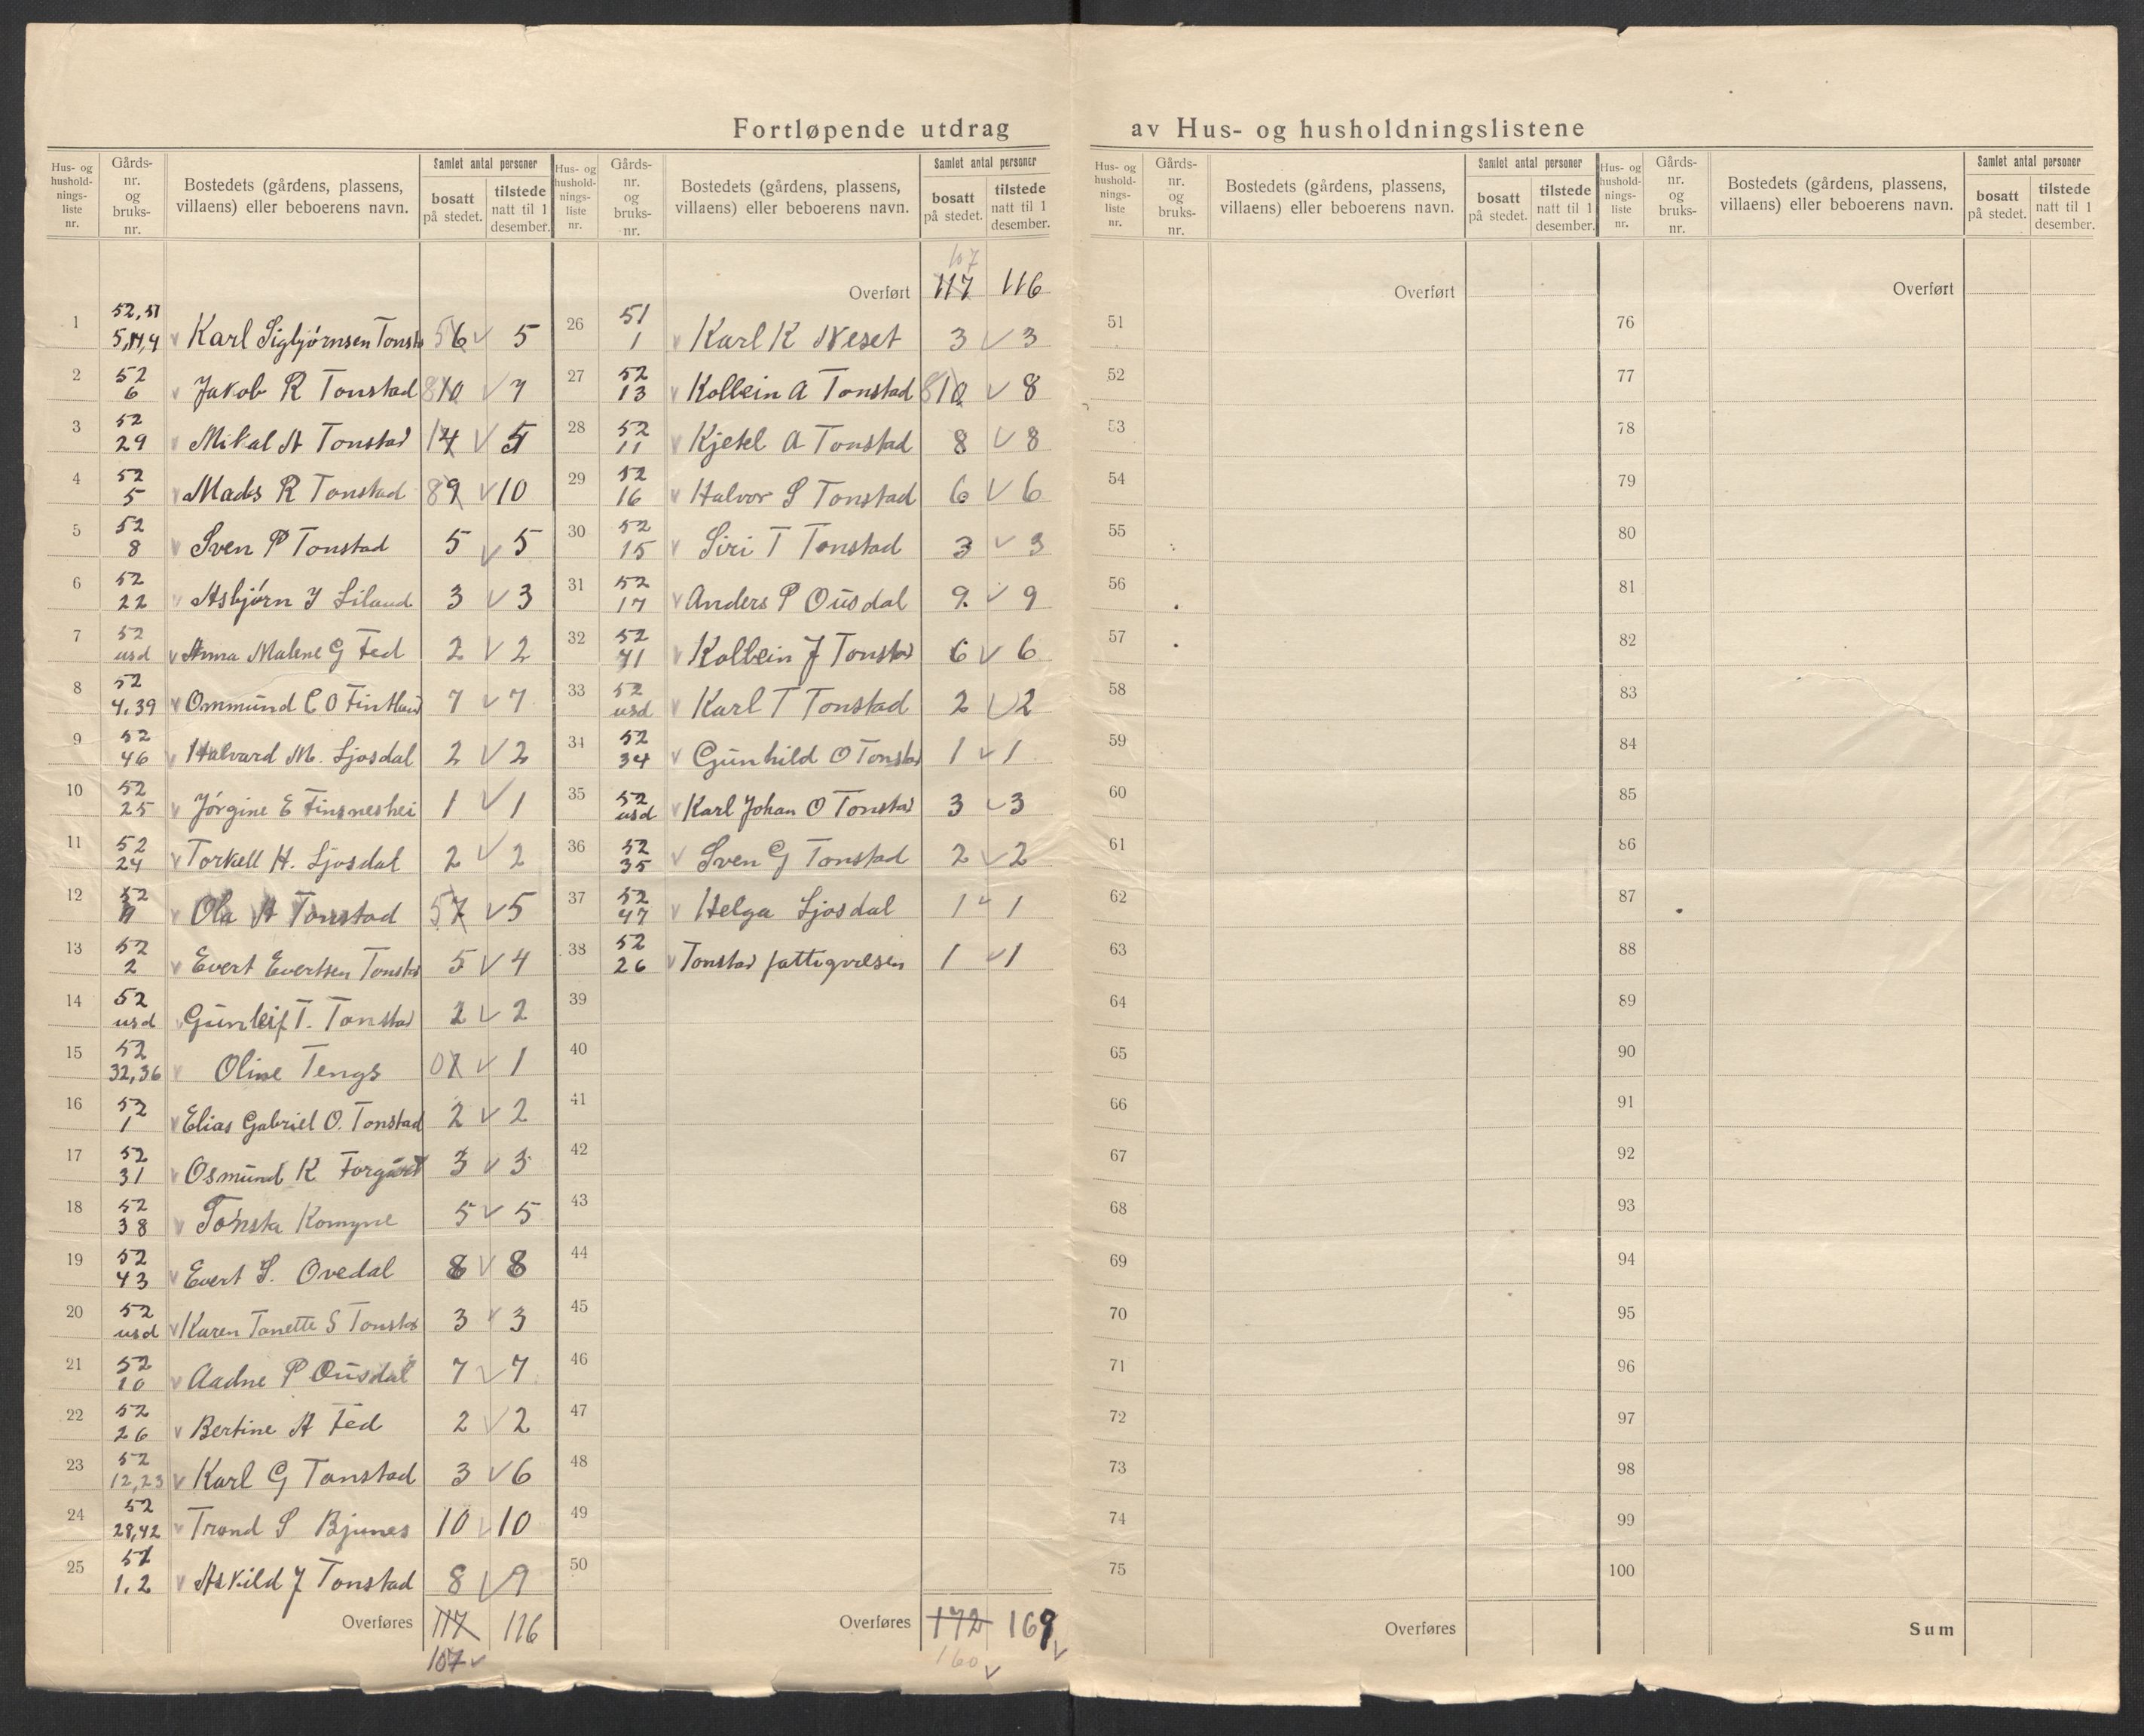 Fortløpende utdrag av Hus- og husholdningslistene
Hus- og hushold-nings-liste nr. Gårds-nr. og bruks-nr. Bostedets (gårdens, plassens, villaens) eller beboerens navn. Samlet antal personer bosatt på stedet. tilstede natt til 1 desember.
1 52, 51 5,14,4 Karl Sigbjørnsen Tonsta 5 6 5
2 52 6 Jakob R Tonstad 8 10 7
3 52 29 Mikal A Tonstad 14 5
4 52 5 Mads R Tonstad 8 9 10
5 52 8 Sven P Tonstad 5 5
6 52 22 Asbjørn J Liland 3 3
7 52 usd Anna Malene G Fed 2 2
8 52 4.39 Ommund C O Fintland 7 7
9 52 46 Halvard M. Ljosdal 2 2
10 52 25 Jørgine E Finsneshei 1 1
11 52 24 Torkell H. Ljosdal 2 2
12 52 9 Ola A Tonstad 5 7 5
13 52 2 Evert Evertsen Tonstad 5 4
14 52 usd Gunleif T. Tonstad 2 2
15 52 32,36 Oline Tengs 0 1 1
16 52 1 Elias Gabriel O. Tonstad 2 2
17 52 31 Osmund K 3 3
18 52 38 Tonsta Komyne 5 5
19 52 43 Evert S. Ovedal 8 8
20 52 usd Karen Tonette S Tonstad 3 3
21 52 10 Aadne P Ousdal 7 7
22 52 26 Bertine A Fed 2 2
23 52 12,23 Karl G Tonstad 3 6
24 52 28,42 Trond S Bjunes 10 10
25 51 1.2 Askild J Tonstad 8 9
Overføres 117 116
107
Hus- og hushold-nings-liste nr. Gårds-nr. og bruks-nr. Bostedets (gårdens, plassens, villaens) eller beboerens navn. Samlet antal personer bosatt på stedet. tilstede natt til 1 desember.
107
Overført 117 116
26 51 1 Karl K Neset 3 3
27 52 13 Kolbein A Tonstad 8 10 8
28 52 11 Kjetel A Tonstad 8 8
29 52 16 Halvor S Tonstad 6 6
30 52 15 Siri T Tonstad 3 3
31 52 17 Anders P Ousdal 9 9
32 52 41 Kolbein J Tonstad 6 6
33 52 usd Karl T Tonstad 2 2
34 52 34 Gunhild O Tonstad 1 1
35 52 usd Karl Johan O Tonstad 3 3
36 52 35 Sven G Tonstad 2 2
37 52 47 Helga Ljosdal 1 1
38 52 26 Tonstad fattigvelsen 1 1
39
40
41
42
43
44
45
46
47
48
49
50
Overføres 172 169
160
Hus- og hushold-nings-liste nr. Gårds-nr. og bruks-nr. Bostedets (gårdens, plassens, villaens) eller beboerens navn. Samlet antal personer bosatt på stedet. tilstede natt til 1 desember.
Overført
51
52
53
54
55
56
57
58
59
60
61
62
63
64
65
66
67
68
69
70
71
72
73
74
75
Overføres
Hus- og hushold-nings-liste nr. Gårds-nr. og bruks-nr. Bostedets (gårdens, plassens, villaens) eller beboerens navn. Samlet antal personer bosatt på stedet. tilstede natt til 1 desember.
Overført
76
77
78
79
80
81
82
83
84
85
86
87
88
89
90
91
92
93
94
95
96
97
98
99
100
Sum